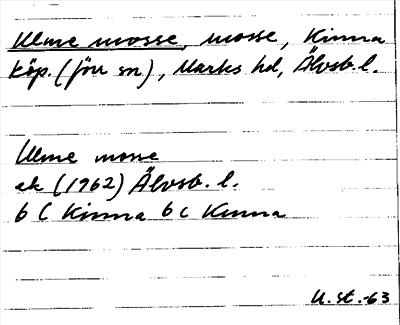 Ulme mosse, mosse, Kinna
köp. (förr sn.), Marks hd, Älvsb. l.
Ulme mosse
ek (1962) Älvsb. l.
6 C Kinna 6 c Kinna
U. st. -63